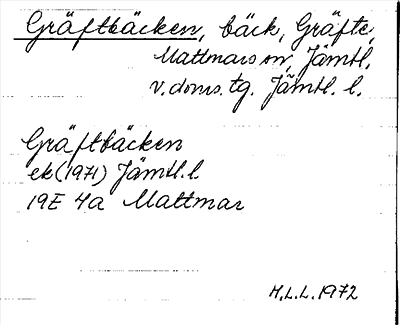 Gräftbäcken, bäck, Gräfte,
Mattmars sn, Jämtl.
v. doms. tg. Jämtl. l.
Gräftbäcken
ek (1971) Jämtl. l.
19E 4a Mattmar
H.L.L. 1972